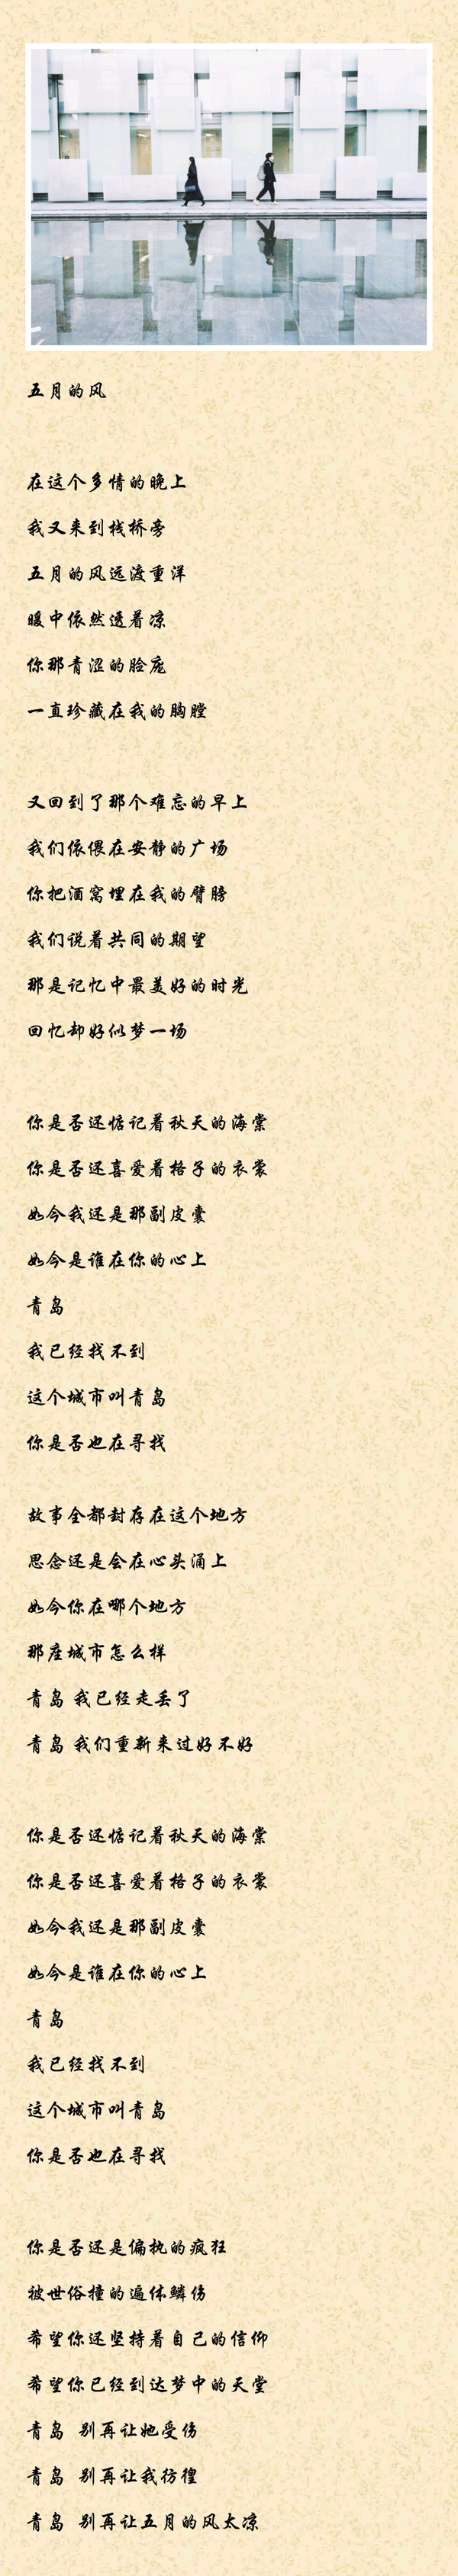 五月的风
在这个多情的晚上
我又来到栈桥旁
五月的风远渡重洋
暖中依然透着凉
你那青涩的脸庞
一直珍藏在我的胸膛
又回到了那个难忘的早上
我们依偎在安静的广场
你把酒窝埋在我的臂膀
我们说着共同的期望
那是记忆中最美好的时光
回忆却好似梦一场
你是否还惦记着秋天的海棠
你是否还喜爱着格子的衣裳
如今我还是那副皮囊
如今是谁在你的心上
青岛
我已经找不到
这个城市叫青岛
你是否也在寻找
故事全都封存在这个地方
思念还是会在心头涌上
如今你在哪个地方
那座城市怎么样
青岛 我已经走丢了
青岛 我们重新来过好不好
你是否还惦记着秋天的海棠
你是否还喜爱着格子的衣裳
如今我还是那副皮囊
如今是谁在你的心上
青岛
我已经找不到
这个城市叫青岛
你是否也在寻找
你是否还是偏执的疯狂
被世俗撞的遍体鳞伤
希望你还坚持着自己的信仰
希望你已经到达梦中的天堂
青岛 别再让她受伤
青岛 别再让我彷徨
青岛 别再让五月的风太凉